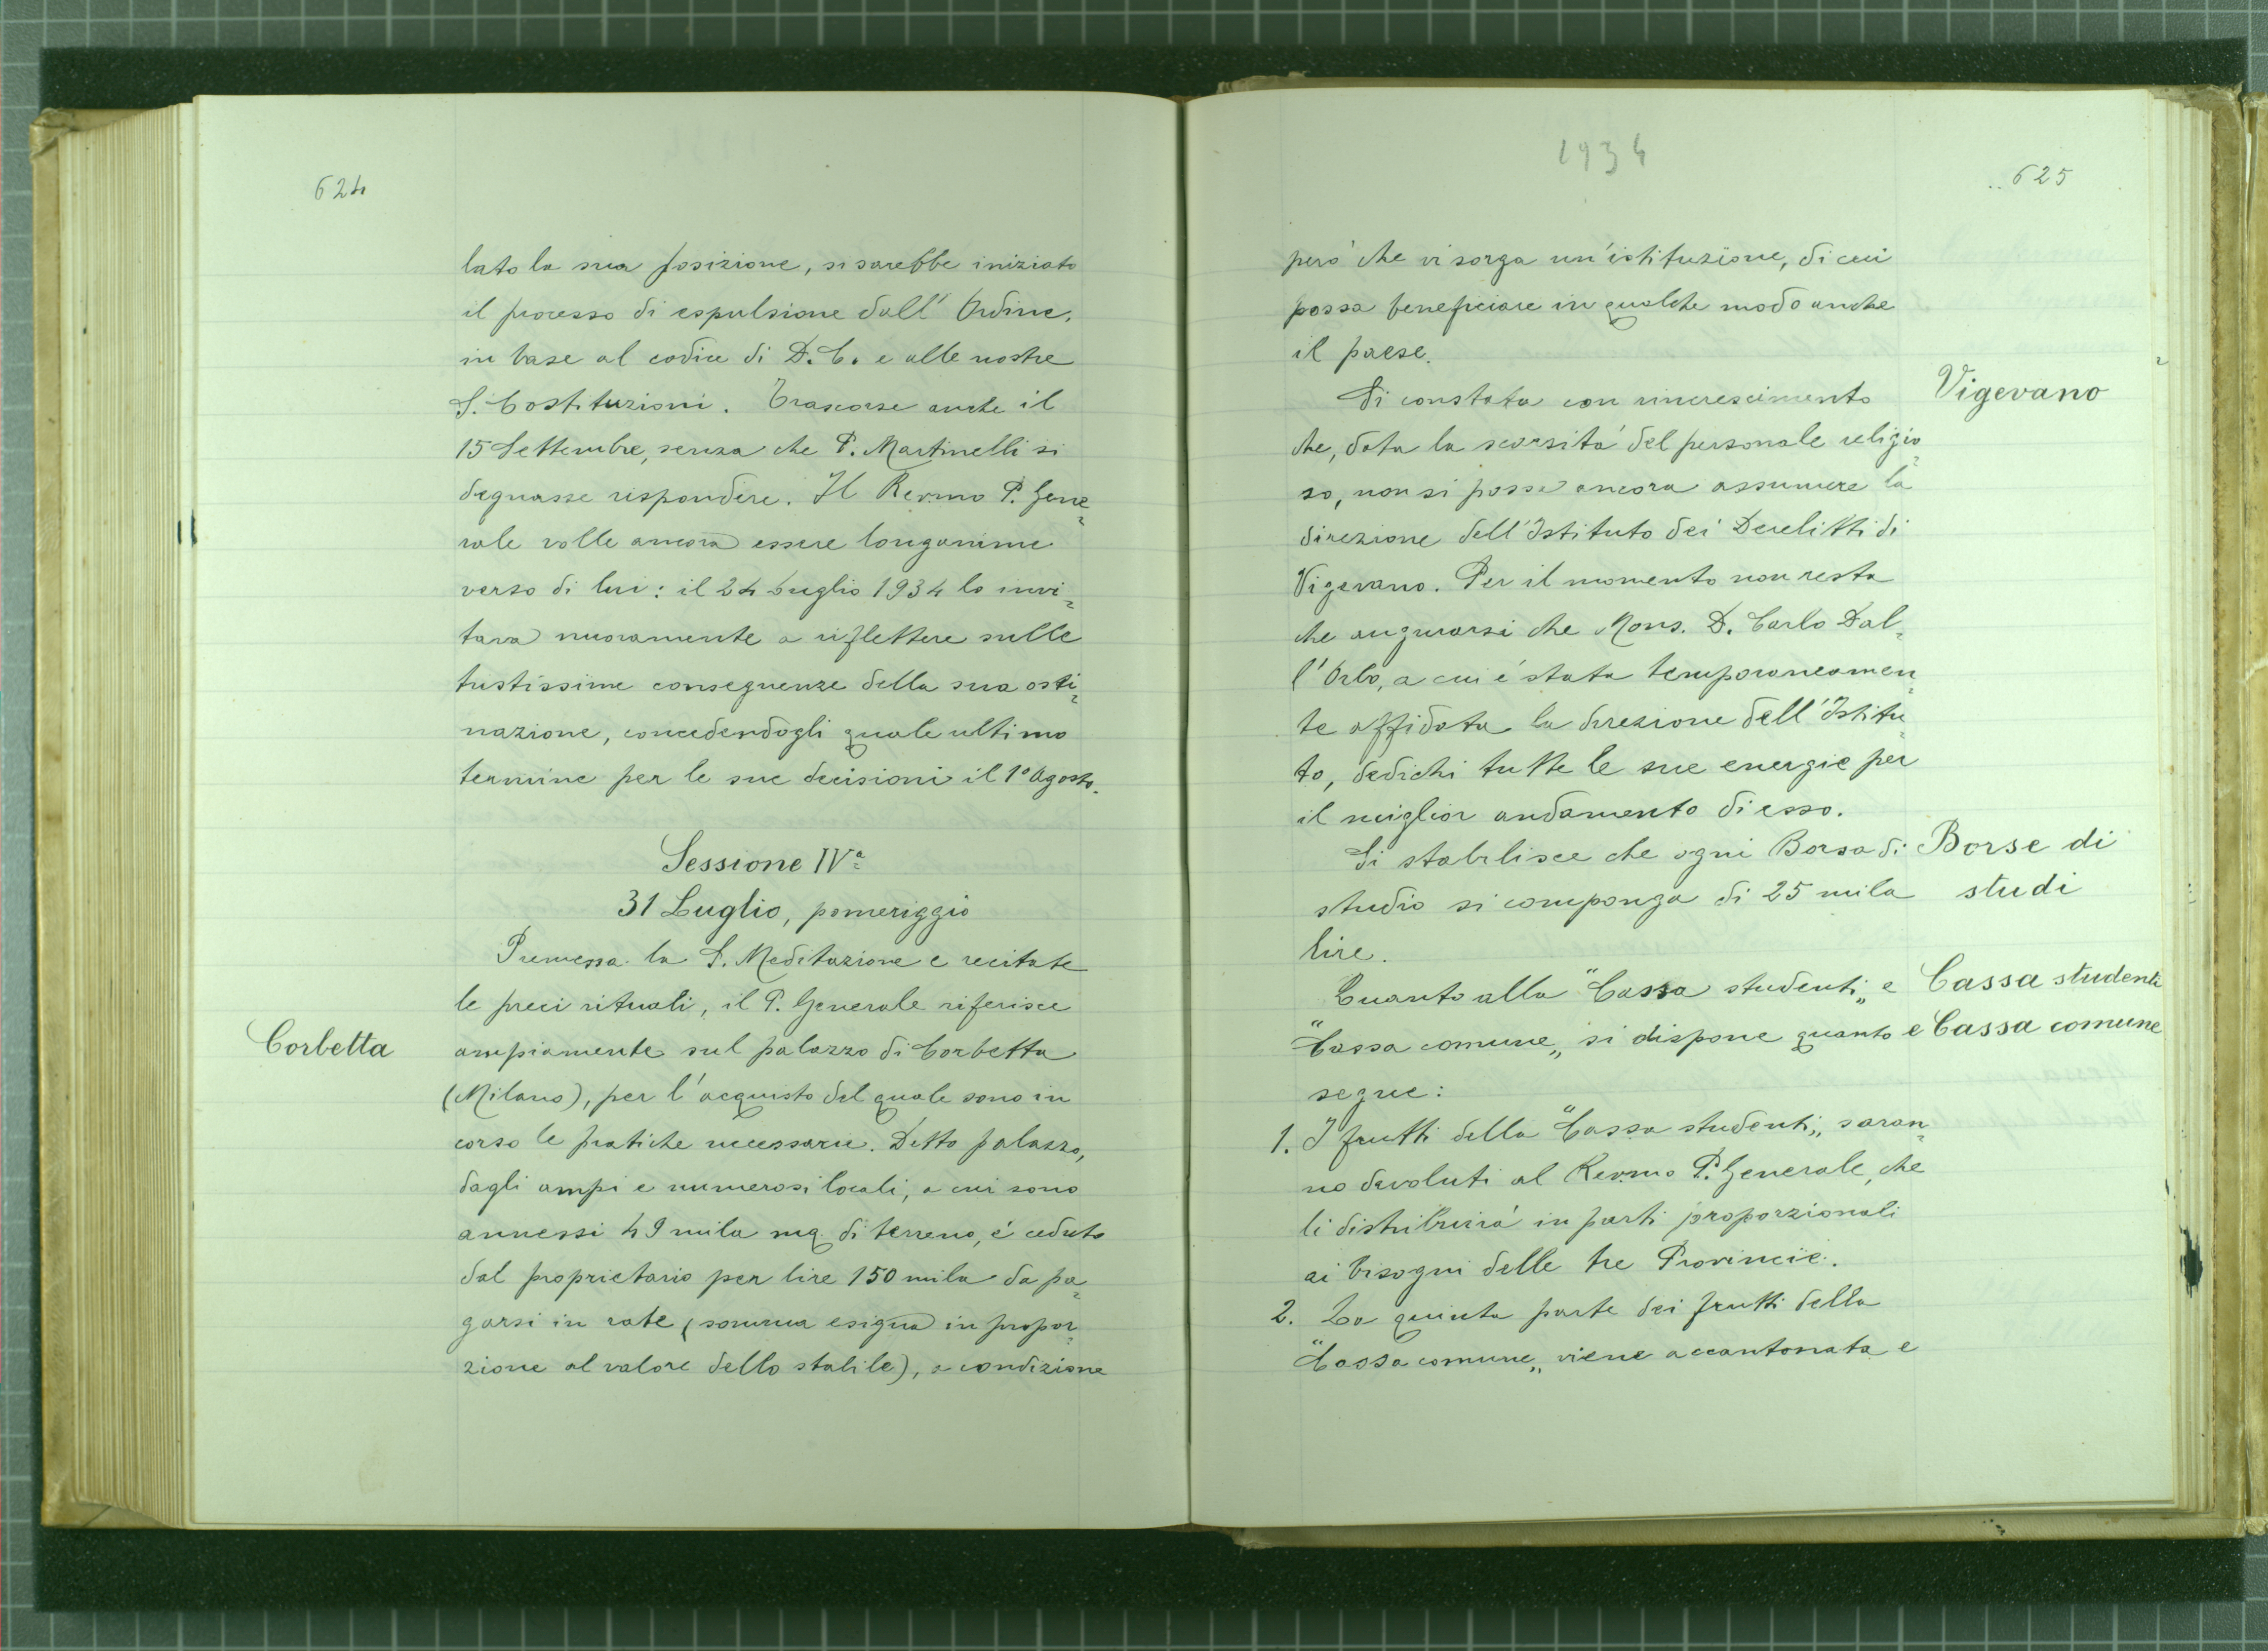 624
lato la sua posizione, si sarebbe iniziato
il processo di espulsione dall'Ordine,
in base al codice di D. C. e alle nostre
S. Costituzioni. Trascorse anche il
15 Settembre, senza che P. Martinelli si
degnasse rispondere. Il Rev.mo P. Gene=
rale volle ancora essere longanime
verso di lui: il 24 Luglio 1934 lo invi=
tava nuovamente a riflettere sulle
tristissime conseguenze della sua osti=
nazione, concedendogli quale ultimo
termine per le sue decisioni il 1º Agosto.
Sessione IVª
31 Luglio, pomeriggio
Premessa la S. Meditazione e recitate
le preci rituali, il P. Generale riferisce
Corbetta
ampiamente sul palazzo di Corbetta
(Milano), per l'acquisto del quale sono in
corso le pratiche necessarie. Detto palazzo,
dagli ampi e numerosi locali, a cui sono
annessi 49 mila mq. di terreno, é ceduto
dal proprietario per lire 150 mila da pa=
garsi in rate (somma esigua in propor=
zione al valore dello stabile), a condizione
1934
625
peró che vi sorga un'istituzione, di cui
possa beneficiare in qualche modo anche
il paese.
Si constata con rincrescimento
Vigevano
che, data la scarsitá del personale religio=
so, non si possa ancora assumere la
direzione dell'Istituto dei Derelitti di
Vigevano. Per il momento non resta
che augurarsi che Mons. D. Carlo Dal=
l'Orbo, a cui é stata temporaneamen=
te affidata la direzione dell'Istitu=
to, dedichi tutte le sue energie per
il miglior andamento di esso.
Si stabilisce che ogni Borsa di
Borse di
studio si componga di 25 mila
studi
lire.
Quanto alla "Cassa studenti„ e
Cassa studenti
"Cassa comune„ si dispone quanto
e Cassa comune
segue:
1. I frutti della "Cassa studenti„ saran=
no devoluti al Rev.mo P. Generale, che
li distribuirá in parti proporzionali
ai bisogni delle tre Provincie.
2. La quinta parte dei frutti della
"Cassa comune„ viene accantonata e